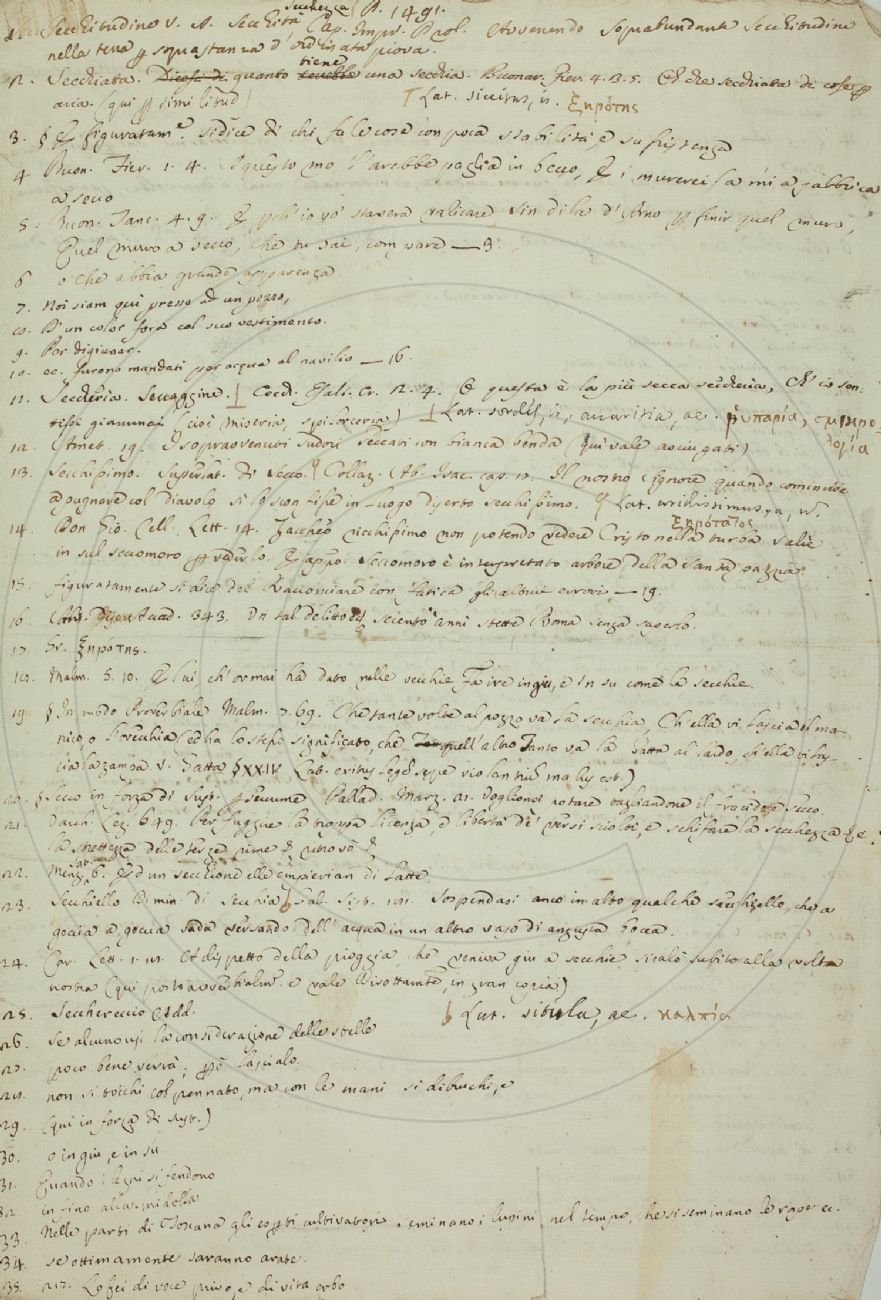 Secchezza A. 1491.
1. Secchitudine v. A. Secchità Cap. Impr. Prol. Avvenendo soprabundante secchitudine
nella terra p squastanza d'ordinata piova.
2. Secchiata. Dicesi di quanto tiene una secchia. Buonar. Fier. 4. 3. 5. Ch che secchiata di cose p
aria. (qui p similitud)
Lat. siccitas, is. ξηρότης
3. § E figuratam.e si dice di chi fa le cose con poca stabilità, e sussistenza
4. Buon. Fier. 1. 4. I questo mo l'arebbe paglia in becco, E i murerei la mi a fabbrica
a secco
5. Buon. Tanc. 4. 9. E perch'io vo' stasera valicare Sin di là d'Arno p finir quel muro,
Quel muro a secco, che tu sai, compare — 3.
6 o che abbia grande apparenza
7. Noi siam qui presso ad un pozzo,
8. D'un color fora col suo vestimento.
9. Por digiunar.
10. ec. furono mandati per acqua al navilio — 16.
11. Seccheria. Seccaggine. Cecch. Esalt. Cr. 2. 4. O questa è la più secca seccheria, Ch'io sen-
tissi giammai (cioè miseria, spilorceria) Lat. sordes, avaritia, ae. ῥυπαρία, σμικρο-
λογία
12. Amet. 19. I sopravvenuti sudori seccati con bianca benda (qui vale asciugati)
13. Secchissimo. Superlat. di Secco. Collaz. Ab. Isac. cap. Il nostro Signore quando cominciò
a pugnare col diavolo si lo sconfisse in luogo diserto secchissimo. Lat. aridissimus, a, um.
ξηρότατος
14. Don Gio. Cell. Lett. 14. Zaccheo ricchissimo non potendo vedere Cristo nella turba salìe
in sul seccomoro p vederlo. E appo. Seccomoro è interpretato arbore della santa pazzia.
15. figuratamente si dice del Racconciare con fatica gli altrui errori — 19.
16. Disc. Acad. 343. Un tal delitto secento anni stette Roma senza saperlo.
17. Gr. ξηροτης.
18. Malm. 5. 10. E lui ch'ormai ha dato nelle vecchie Fa ire in giu, e in su come le secchie.
19. § In modo Proverbiale Malm. 7. 69. Che tante volte al pozzo va la secchia, Ch'ella vi lascia il ma-
nico, o l'orecchia (ed ha lo stesso significato, che quell'altro Tanto va la gatta al lardo, ch'ella vi las-
cia la zampa v. Gatta § XXIV
20. § Secco in forza di Sust. p Seccume Pallad. Marz. 21. Voglionsi potare tagliandone il fracido, e secco.
21. Dav. Lez. 649. Per fuggire la troppa licenza, e libertà de' versi sciolti, e schifare la secchezza, e
la strettezza delle terze rime
22. Menz. sat. 6. Ed un secchione elle empierian di latte.
23. Secchiello Dimin. di Secchia Sal. Sospendasi anco in alto qualche secchiello, che a
goccia a goccia vada versando dell'acqua in un altro vaso di angusta bocca.
24. Car. Lett. 1. Al dispetto della pioggia, che veniva giu a secchie, si calò subito alla volta
nostra (qui posto avverbialm.e e vale Dirottamte, in gran copia)
25. Secchereccio Add. Lat. situla, ae. καλπία
26. Se alcuno usi la considerazione delle stelle
27. poco bene verrà; però lascialo.
28. non si tocchi col pennato, ma con le mani si dibuchi, e
29. (qui in forza di sust.)
30. o in giu, e in su
31. Quando i legni si fendono
32. in fino alla midolla
33. Nelle parti di Toscana gli esperti cultivatori seminano i lupini nel tempo, che si seminano le rape ec.
34. se ottimamente saranno arate.
35. Lo fei di voce privo, e di vita orbo